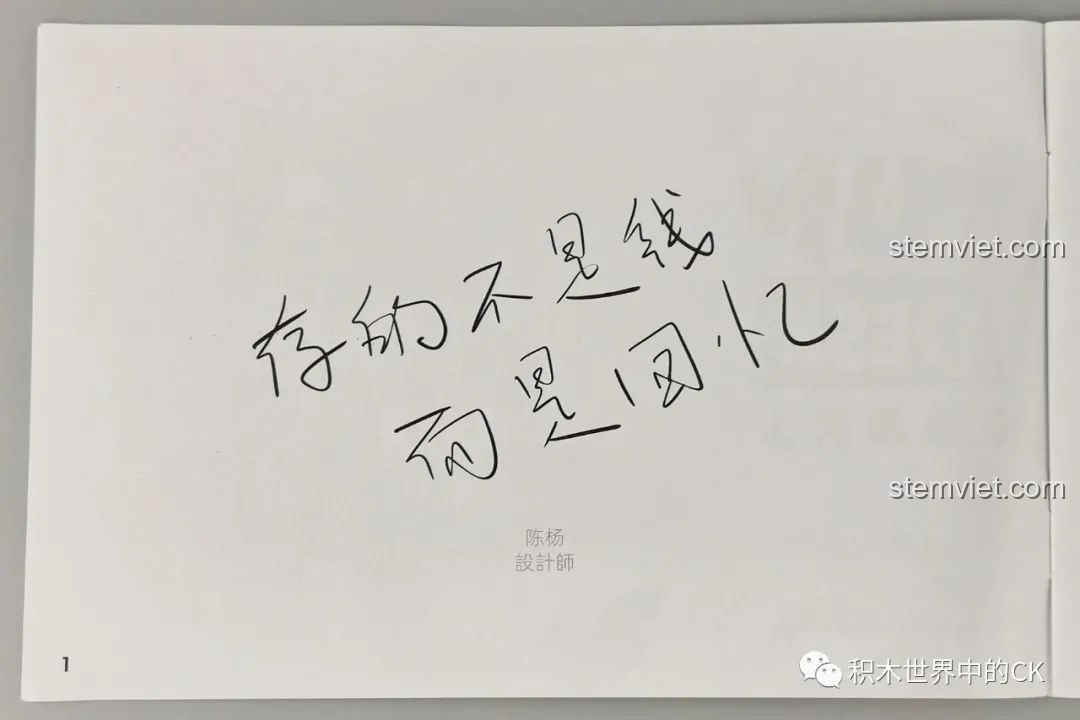 存的不是钱
而是回忆
陈杨
設計師
1
stemviet.com
stemviet.com
积木世界中的CK